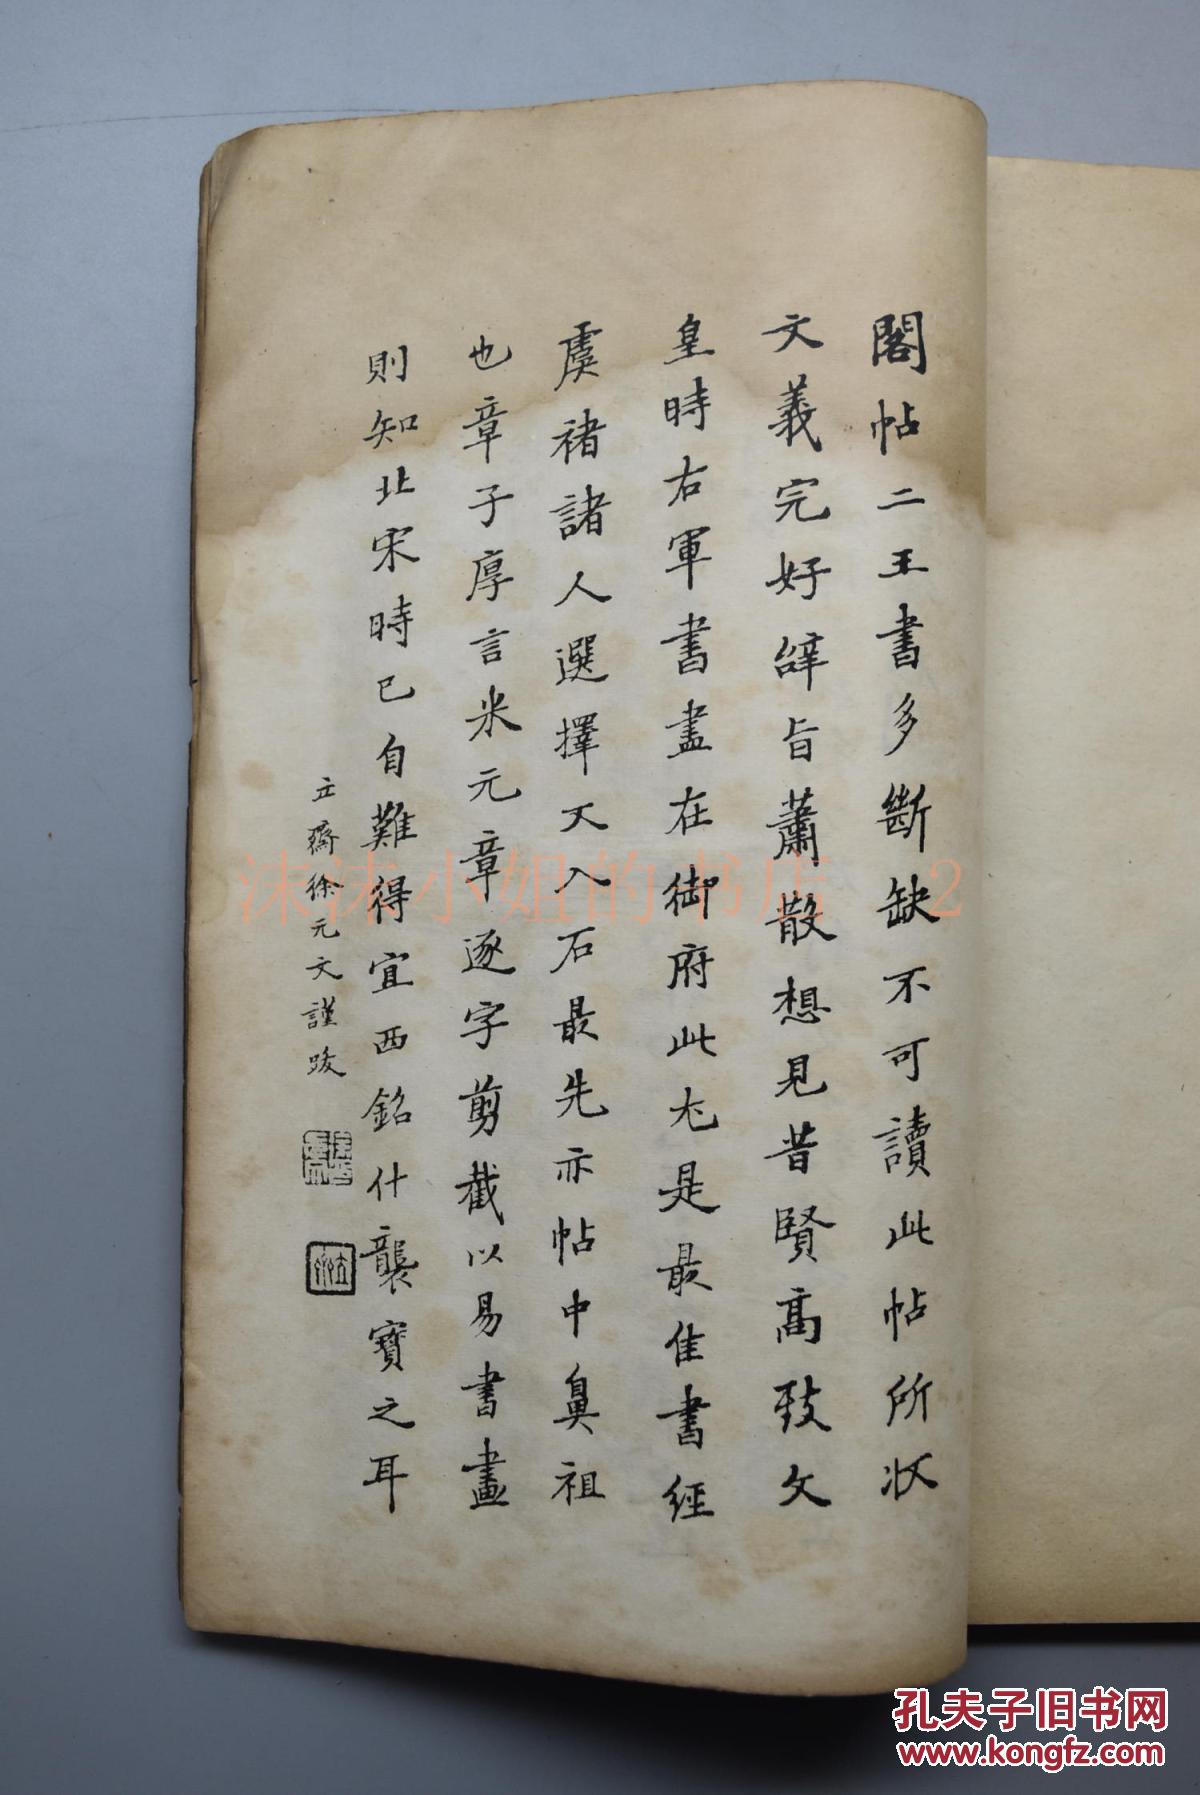 閣帖二王書多斷缺不可讀此帖所狀
文義完好辭旨蕭散想見昔賢高致文
皇時右軍書盡在御府此尤是最佳書經
虞褚諸人選擇又入石最先亦帖中鼻祖
也章子厚言米元章逐字剪截以易書畫
則知北宋時已自難得宜西銘什襲寶之耳
立齋徐元文謹跋
沫沫小姐的书店 2
孔夫子旧书网
www.kongfz.com